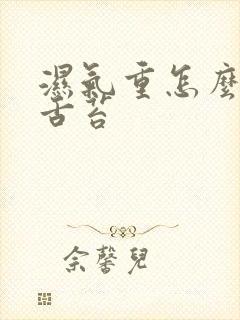 濕氣重怎麼
古苔
余馨兒